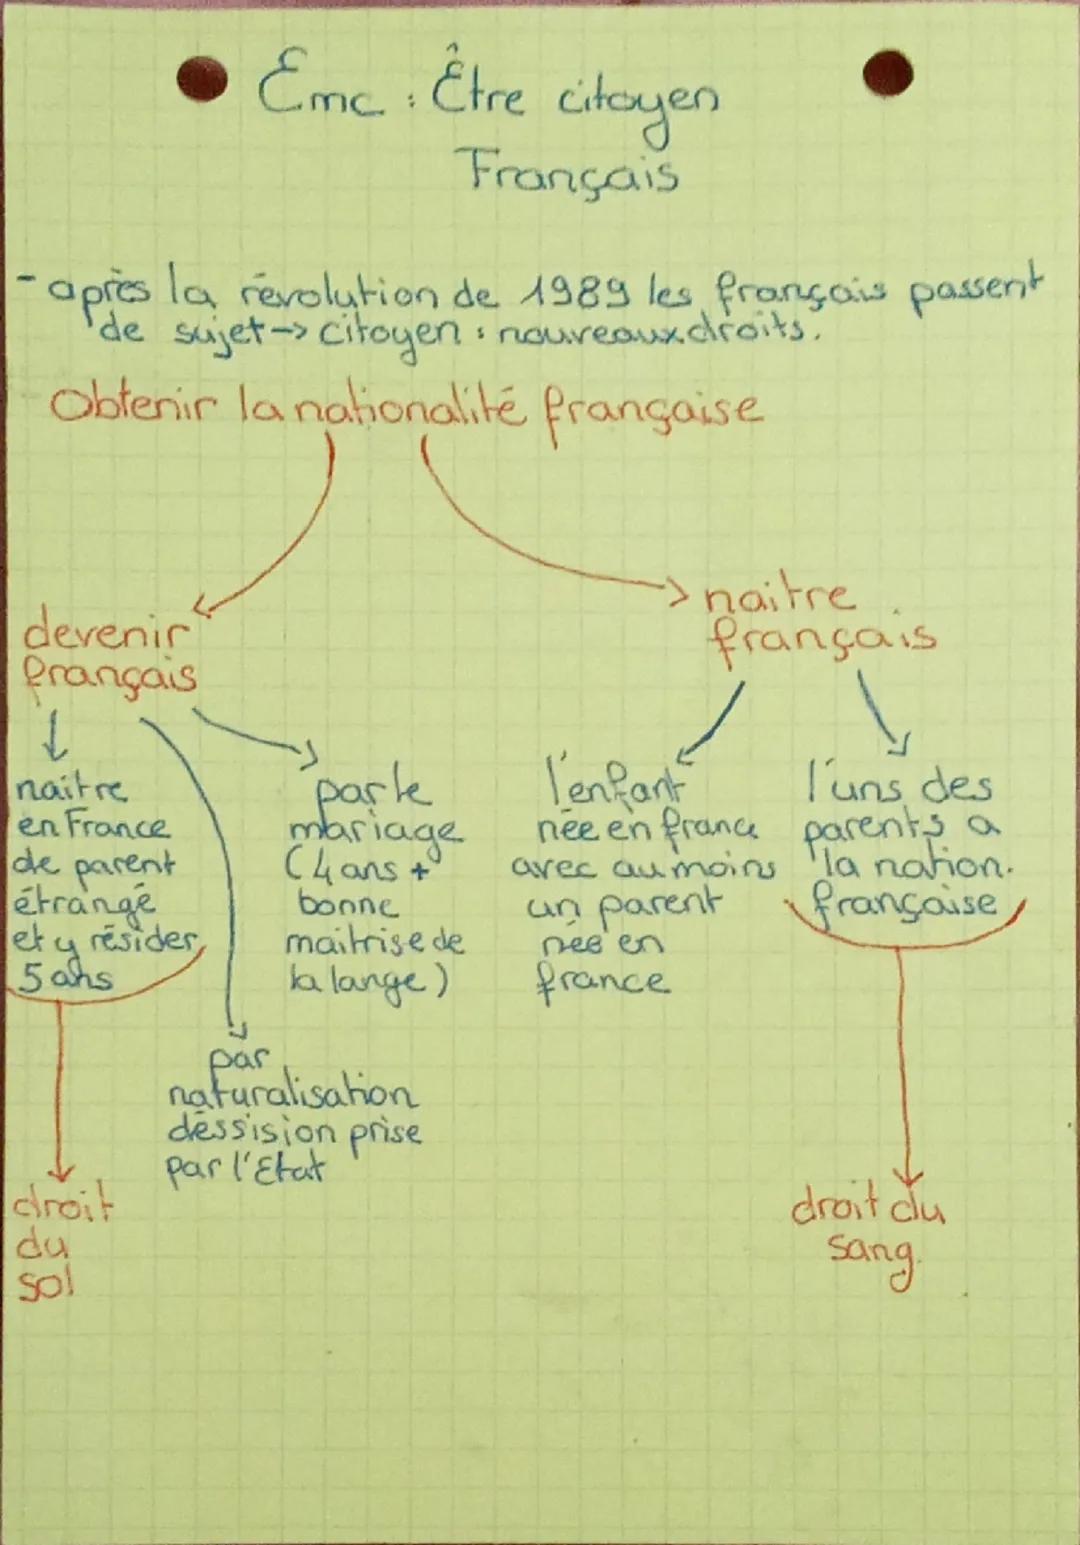 Emc : Être citoyen
Français
- après la révolution de 1989 les français passent
de sujet → citoyen : nouveaux droits.
Obtenir la nationalité française
devenir
français
naitre
en France
de parent
étrangé
et y résider
5 ans
droit
du
sol
par
naturalisation
déssision prise
par l'Etat
par le
mariage
(4 ans +
bonne
maitrise de
la lange)
naitre
français
l'enfant
née en france
avec au moins
un parent
née en
france
l'uns des
parents a
la nation.
française
droit du
sang.